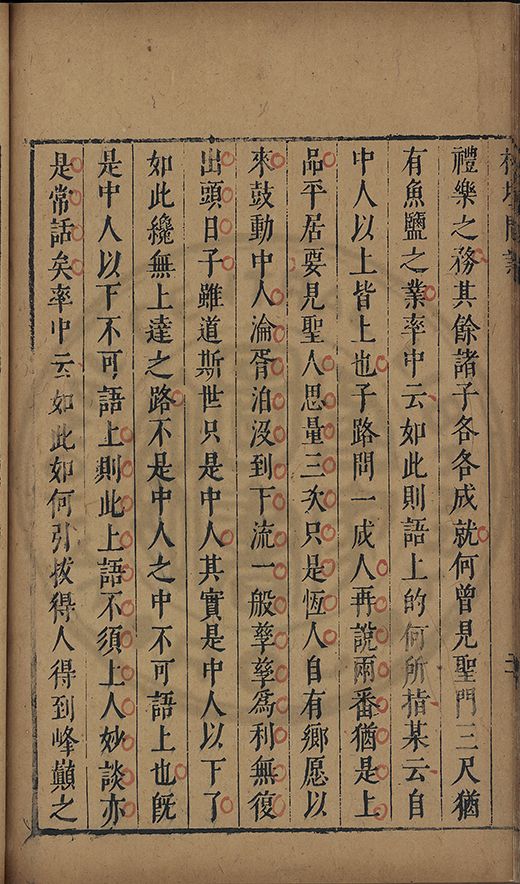 禮樂之務其餘諸子各各成就何曾見聖門三尺猶
有魚鹽之業率中云如此則語上的何所指某云自
中人以上皆上也子路問一成人再說兩番猶是上
品平居要見聖人思量三次只是恆人自有鄉愿以
來鼓動中人淪胥汨沒到下流一般孳孳為利無復
出頭日子雖道斯世只是中人其實是中人以下了
如此纔無上達之路不是中人之中不可語上也既
是中人以下不可語上則此上語不須上人妙談亦
是常話矣率中云如此如何引拔得人得到峰巔之